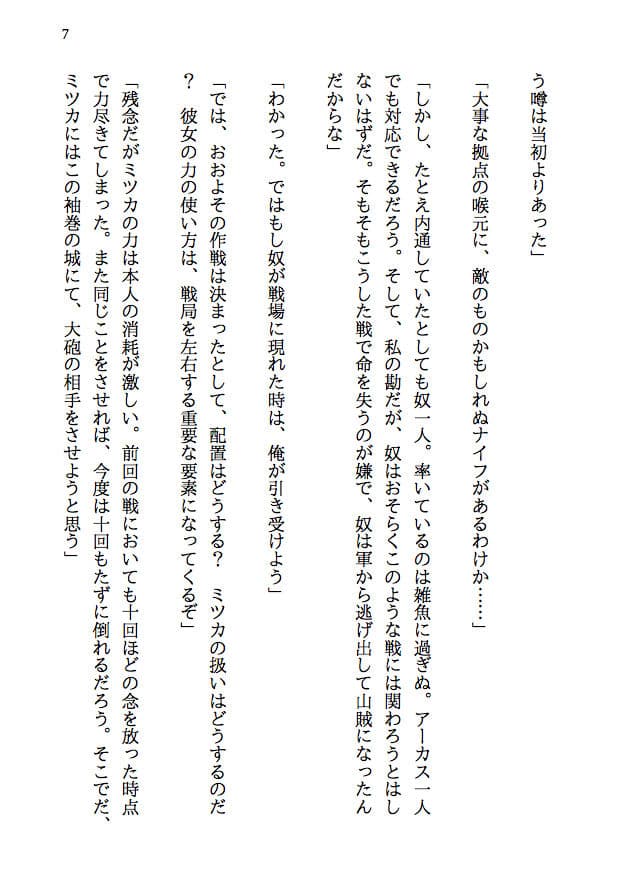 7
う噂は当初よりあった」
「大事な拠点の喉元に、敵のものかもしれぬナイフがあるわけか……」
「しかし、たとえ内通していたとしても奴一人。率いているのは雑魚に過ぎぬ。アーカス一人
でも対応できるだろう。そして、私の勘だが、奴はおそらくこのような戦には関わろうとはし
ないはずだ。そもそもこうした戦で命を失うのが嫌で、奴は軍から逃げ出して山賊になったん
だからな」
「わかった。ではもし奴が戦場に現れた時は、俺が引き受けよう」
「では、おおよその作戦は決まったとして、配置はどうする？　ミツカの扱いはどうするのだ
？　彼女の力の使い方は、戦局を左右する重要な要素になってくるぞ」
「残念だがミツカの力は本人の消耗が激しい。前回の戦においても十回ほどの念を放った時点
で力尽きてしまった。また同じことをさせれば、今度は十回もたずに倒れるだろう。そこでだ、
ミツカにはこの袖巻の城にて、大砲の相手をさせようと思う」